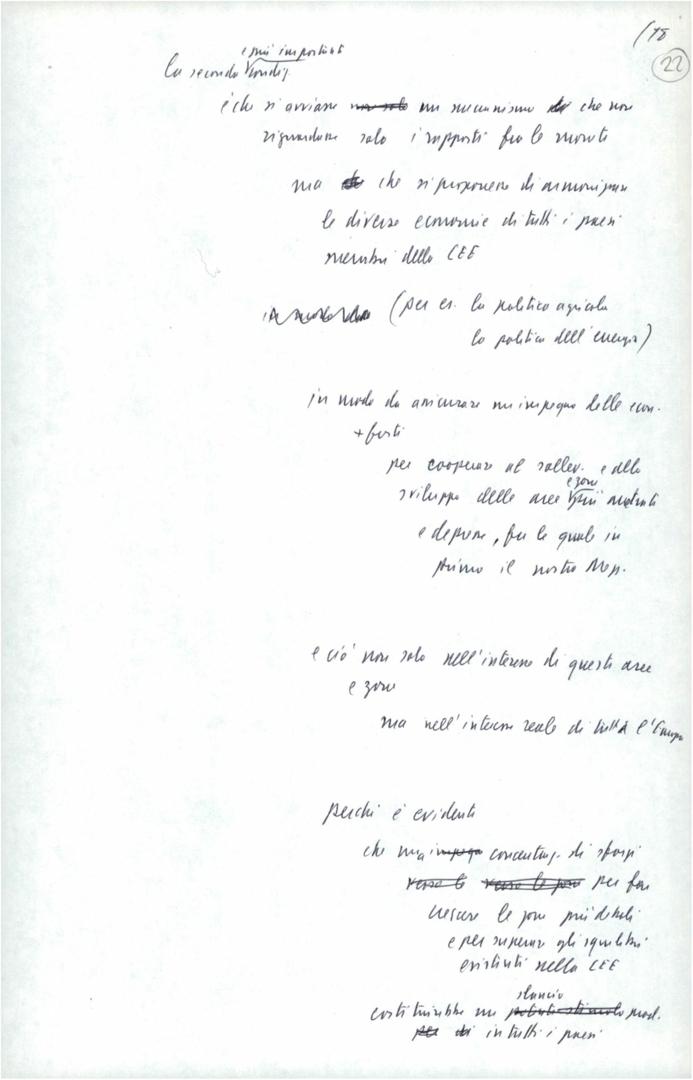 (18
22
e più importanti
la seconda condiz.
è che si avviasse non solo un meccanismo di che non
riguardasse solo i rapporti fra le monete
ma che si proponesse di armonizzare
le diverse economie di tutti i paesi
membri della CEE
(per es. la politica agricola
la politica dell'energia)
in modo da assicurare un impegno delle econ.
+ forti
per cooperare al sollev. e allo
e zone
sviluppo delle aree più arretrate
e depresse, fra le quali in
primo il nostro Mezz.
e ciò non solo nell'interesse di queste aree
e zone
ma nell'interesse reale di tutta l'Europa
perché è evidente
che una impegno concentraz. di sforzi
verso le verso le zone per far
crescere le zone più deboli
e per superare gli squilibri
esistenti nella CEE
slancio
costituirebbe un potente stimolo prod.
per di in tutti i paesi